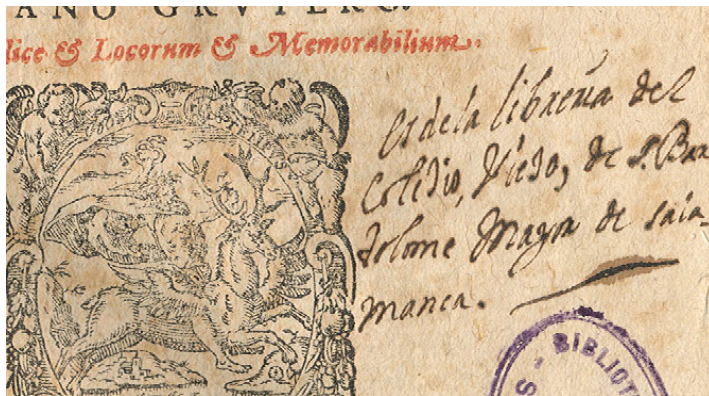 ANO GRVTERO.
lice & Locorum & Memorabilium.
Es de la libreria del
Colesio, Viejo, de S. Bar
tolome Mayor de sala-
manca.
S - BIBLIOT